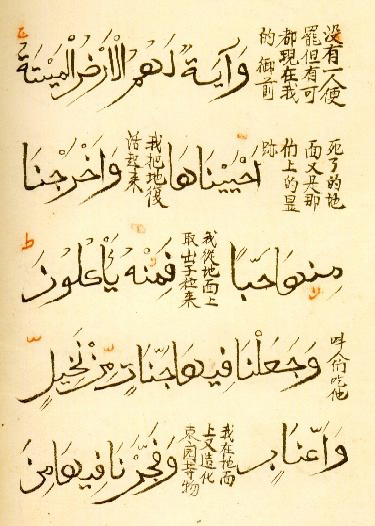 没有一人便
罷但有可
都現在我
的御前
وَآيَةٌ لَهُمُ الْأَرْضُ الْمَيْتَةُ
死了的地
面又是那
跡
أَحْيَيْنَاهَا
我把地復
活起來
وَأَخْرَجْنَا
مِنْهَا حَبًّا
我從地面上
取出子粒來
فَمِنْهُ يَأْكُلُونَ
吃他
وَجَعَلْنَا فِيهَا جَنَّاتٍ مِنْ نَخِيلٍ
وَأَعْنَابٍ
我在地面
上又造化
园等物
وَفَجَّرْنَا فِيهَا مِنَ